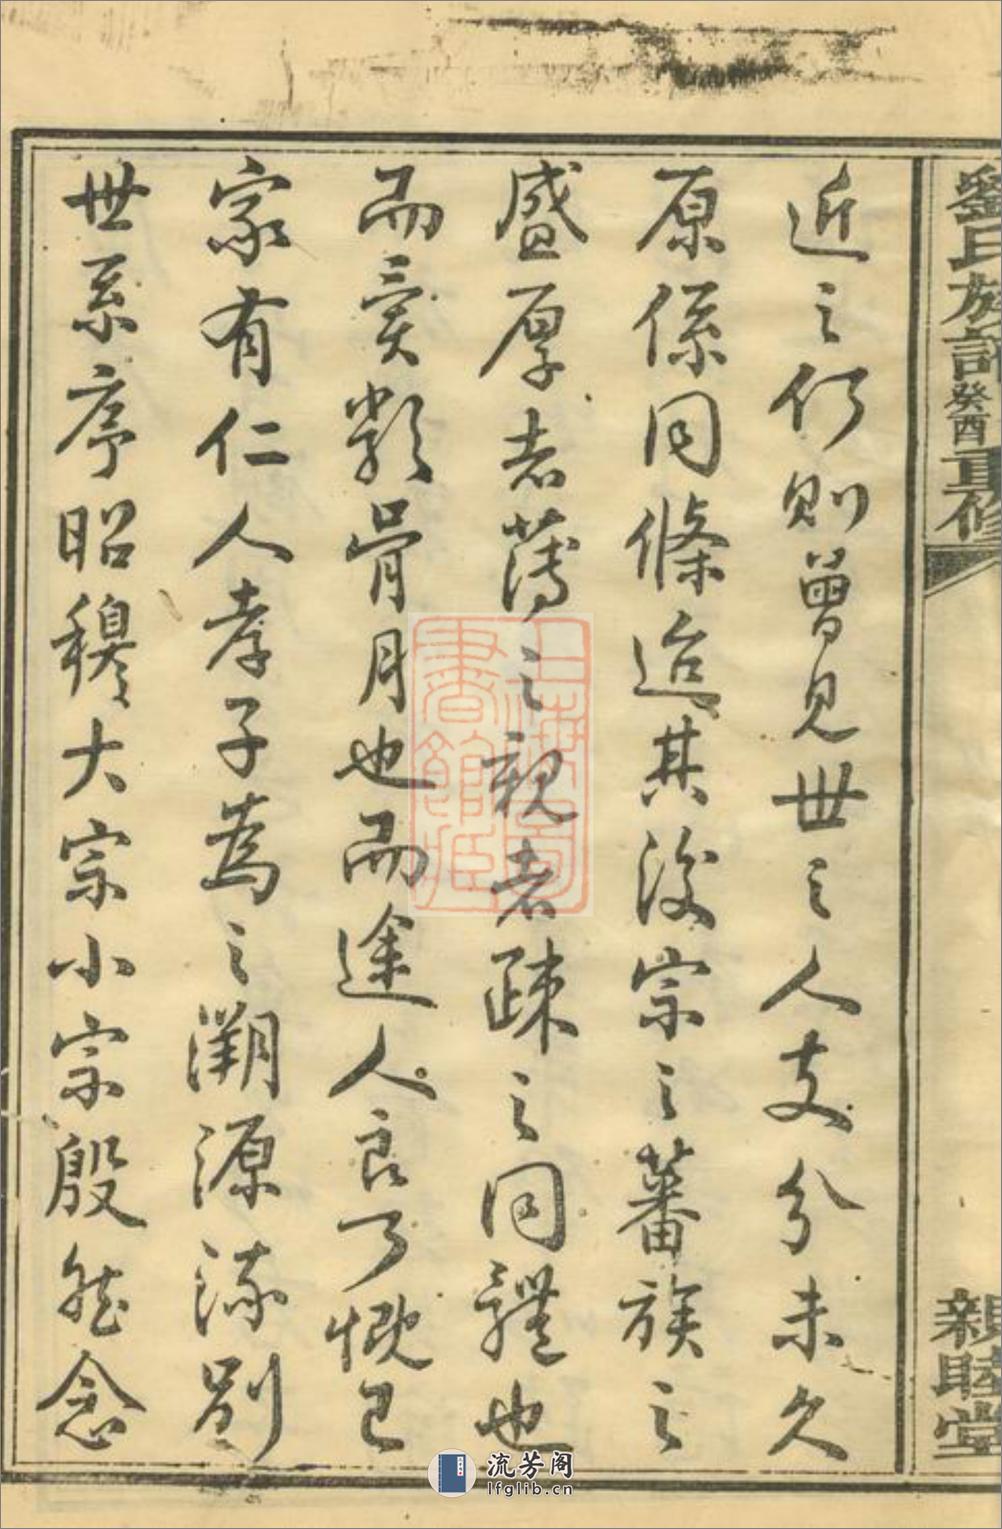 劉氏族譜 癸酉重修
親睦堂
近之何則曾見世之人支分未久
原係同條迨其後宗之蕃族之
盛厚者薄之親者疎之同體也
而異類骨月也而途人良可慨已
家有仁人孝子為之溯源流別
世系序昭穆大宗小宗殷然念
上海圖書館藏
流芳阁
lfglib.cn